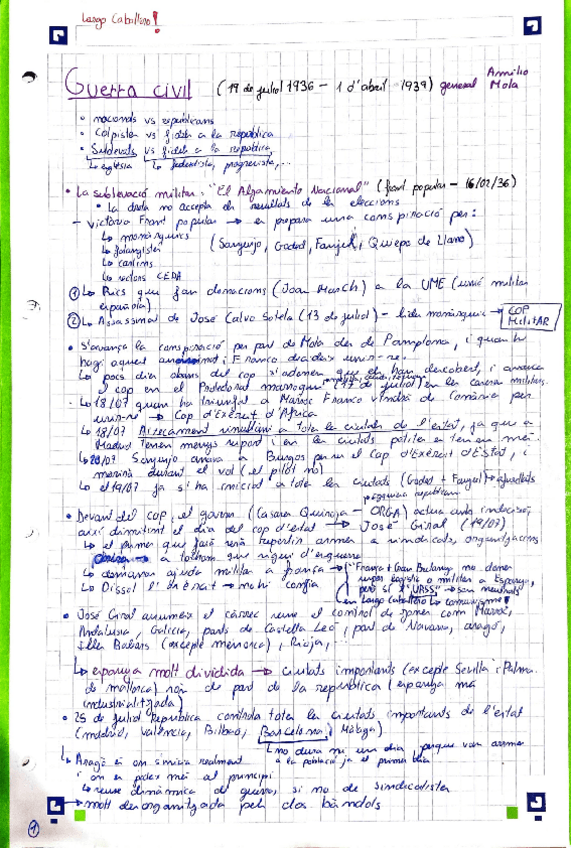 Largo Caballero!
Guerra civil (19 de juliol 1936 - 1 d'abril 1939) general Amilio Mola
• nacionals vs republicans
• Colpistes vs fidels a la república
• Sublevats vs fidels a la república
↳ església ↳ federalista, progressista,...
• La sublevació militar: "El Alzamiento Nacional" (front popular - 16/02/36)
• La dreta no accepta els resultats de les eleccions
- victòria Front popular → es prepara una conspiració per:
↳ monàrquics
↳ falangistes (Sanjurjo, Goded, Fanjul, Quiepo de Llano)
↳ carlins
↳ sectors CEDA
① ↳ Rics que fan donacions (Joan March) a la UME (unió militar
española)
② ↳ Assassinat de José Calvo Sotelo (13 de juliol) - líder monàrquic → COP MILITAR
• S'avança la conspiració per part de Mola des de Pamplona, i quan hi
hagi aquest i Franco decideix unir-se.
↳ pocs dies abans del cop s'adonen que el han descobert, i avança
el cop en el Protectorat marroquí (17 de juliol) en les caseres militars.
↳ 18/07 quan ha triumfat a Marroc Franco vindrà de Canàries per
unir-se → Cap d'Exèrcit d'Àfrica
↳ 18/07 Aixecament simultani a totes les ciutats de l'estat, ja que a
Madrid tenen menys suport i en les ciutats petites en tenen més.
↳ 20/07 Sanjurjo anava a Burgos per ser el Cap d'Exèrcit d'Estat, i
morirà durant el vol (el pilot no)
↳ el 19/07 ja s'ha iniciat a totes les ciutats (Goded + Fanjul) → afusellats
• Devant del cop, el govern (Casares Quiroga - ORGA) actua amb indecisió,
així dimitint el dia del cop d'estat → José Giral (19/07)
↳ el primer que farà serà repartir armes a sindicats, organitzacions
a tothom que sigui d'esquerra
↳ demanar ajuda militar a frança → "França + Gran Bretanya no donen
suport logístic o militar a Espanya,
però sí l'"URSS" → son neutrals
↳ Dissol l'exèrcit → no hi confia
en Largo Caballero ↳ comunisme!
• José Giral assumeix el càrrec sense el control de zones com Marroc,
Andalusia, Galícia, parts de Castella Lleó, part de Navarra, aragó,
Illes Balears (excepte menorca), Rioja,...
↳ espanya molt dividida → ciutats importants (excepte Sevilla i Palma
de mallorca) són de part de la república (espanya més
industrialitzada)
• 25 de juliol República controla totes les ciutats importants de l'estat
(madrid, València, Bilbao, Barcelona, Màlaga)
↳ no dura ni un dia perquè van armar
a la població ja el primer dia
↳ Aragó és on s'inicia realment
i on es patex més al principi
↳ sense dinàmica de guerra, si no de sindicalistes
↳ molt desorganitzada pels dos bàndols
①